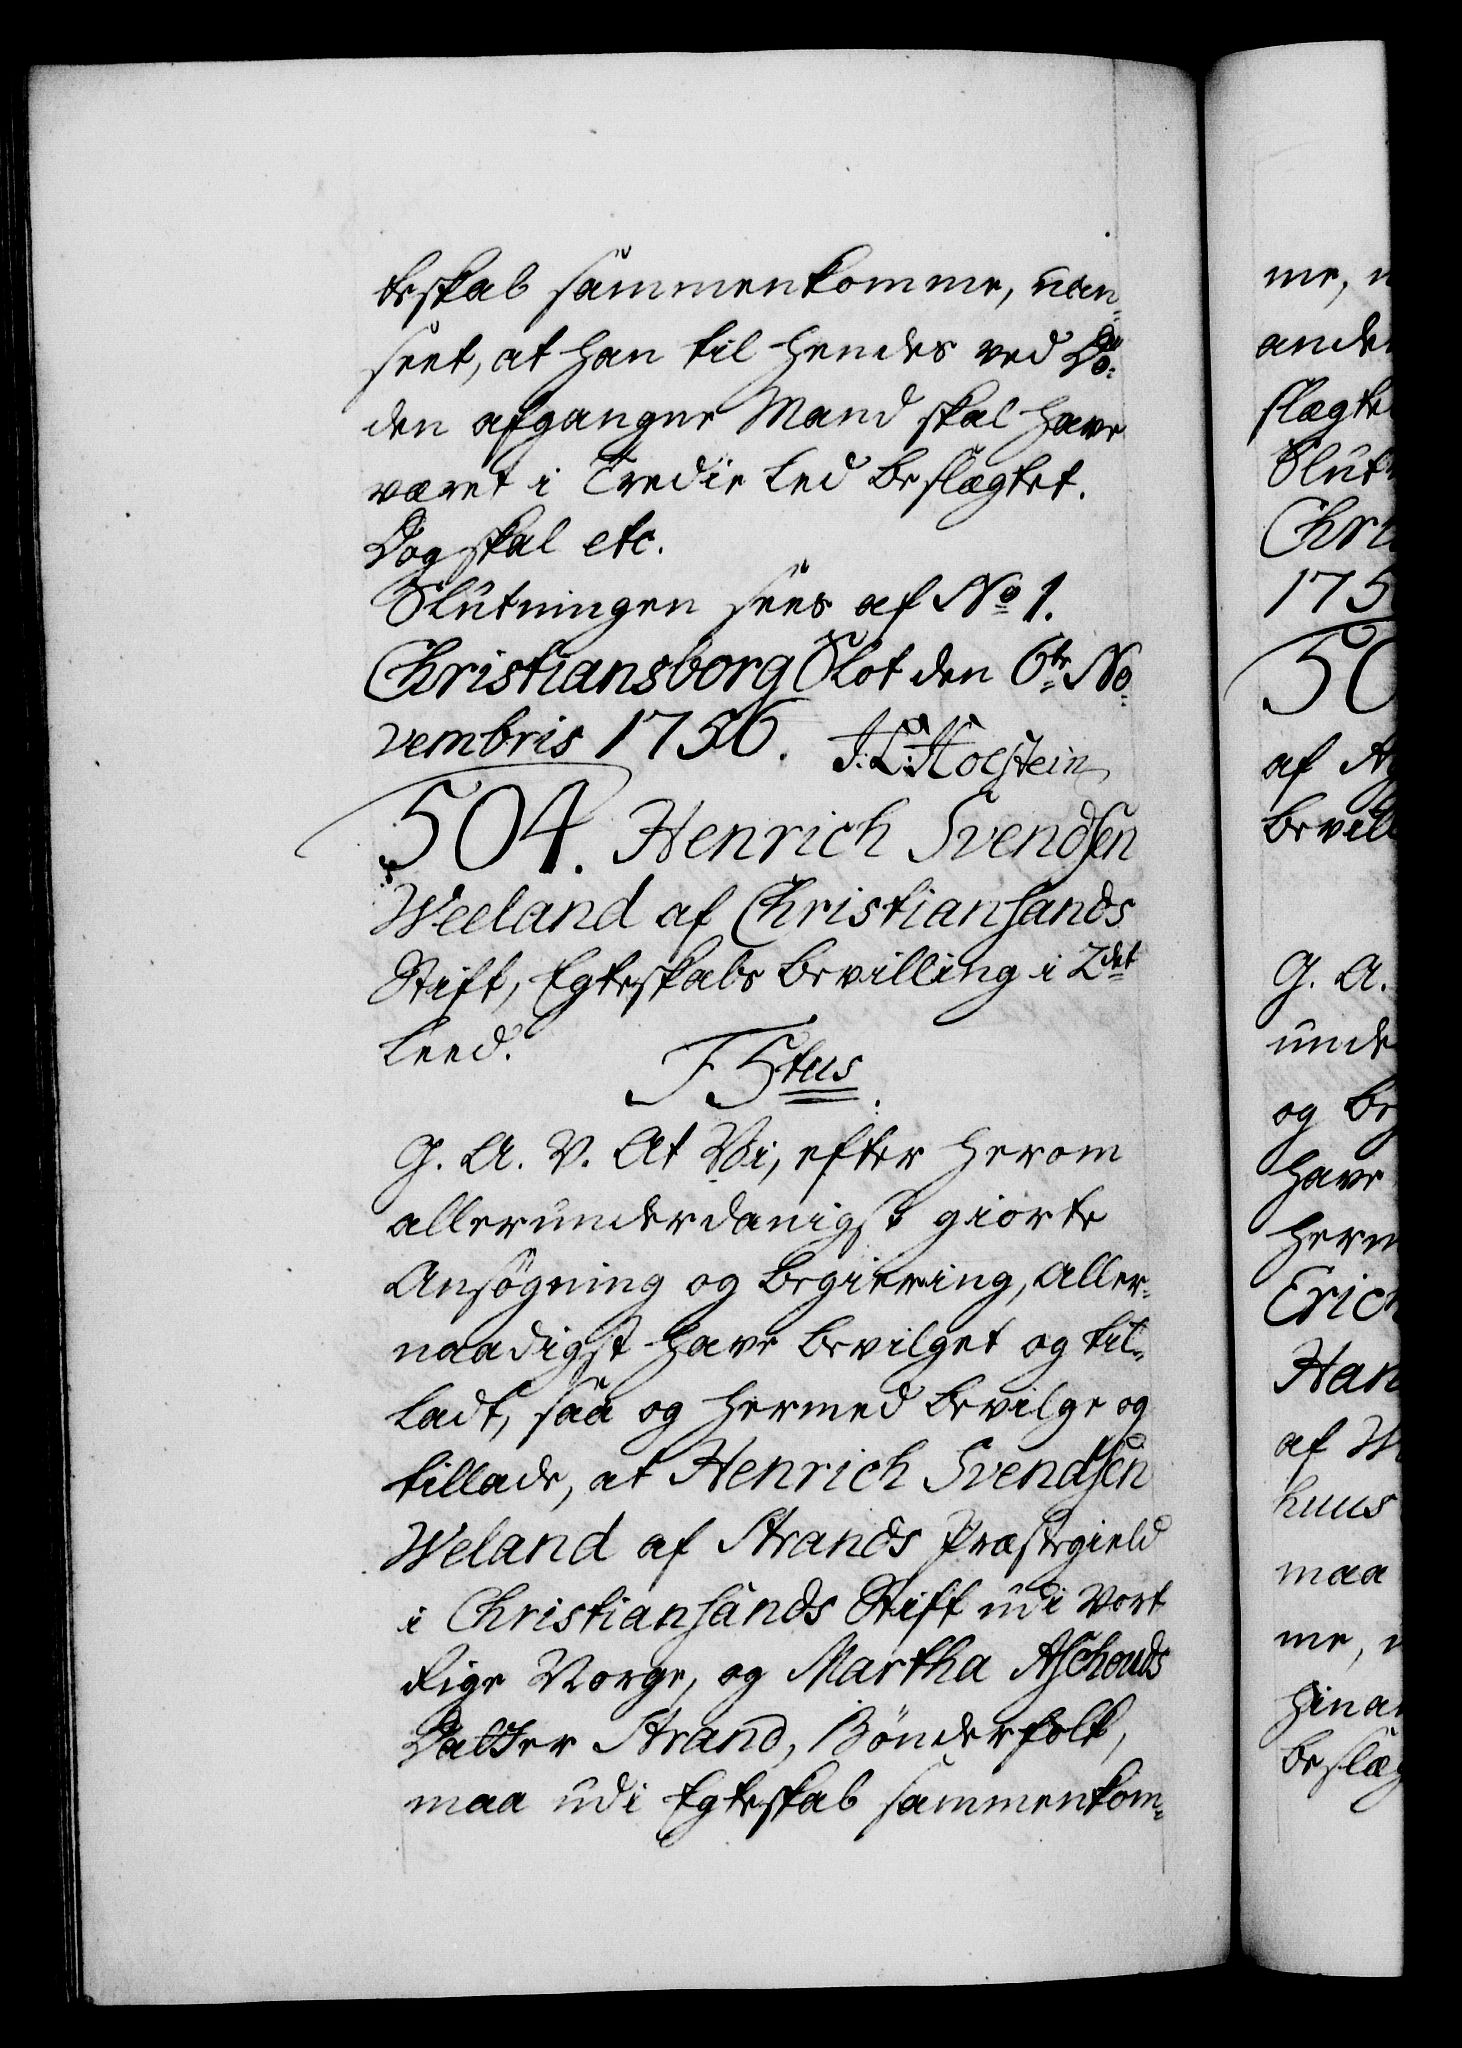 teskab sammenkomme, uan-
seet, at han til hendes ved Dö-
den afgangne Mand skal have
været i Tredie Led beslægtet.
Dog skal etc.
Slutningen sees af No 1.
Christiansborg Slot den 6te No
vembris 1756. J: L: Holstein
504. Henrich Svendsen
Weeland af Christiansands
Stift, Egteskabs bevilling i 2det
Leed.
F 5tus.
G. A. V. At Vi, efter herom
allerunderdanigst giorte
Ansøgning og begiering, Aller-
naadigst have bevilget og til-
ladt, saa og hermed bevilge og
tillade, at Henrich Svendsen
Weland af Strands Præstegield
i Christiansands Stift udi Vort
Rige Norge, og Martha
Datter Strand, Bönderfolk,
maa udi Egteskab sammenkom-
me,
ande
slægte
Slut
Chri
175
50
af
bevil
G. A.
unde
og be
have
herm
Eric
Han
af
huus
maa
me,
hina
beslæg